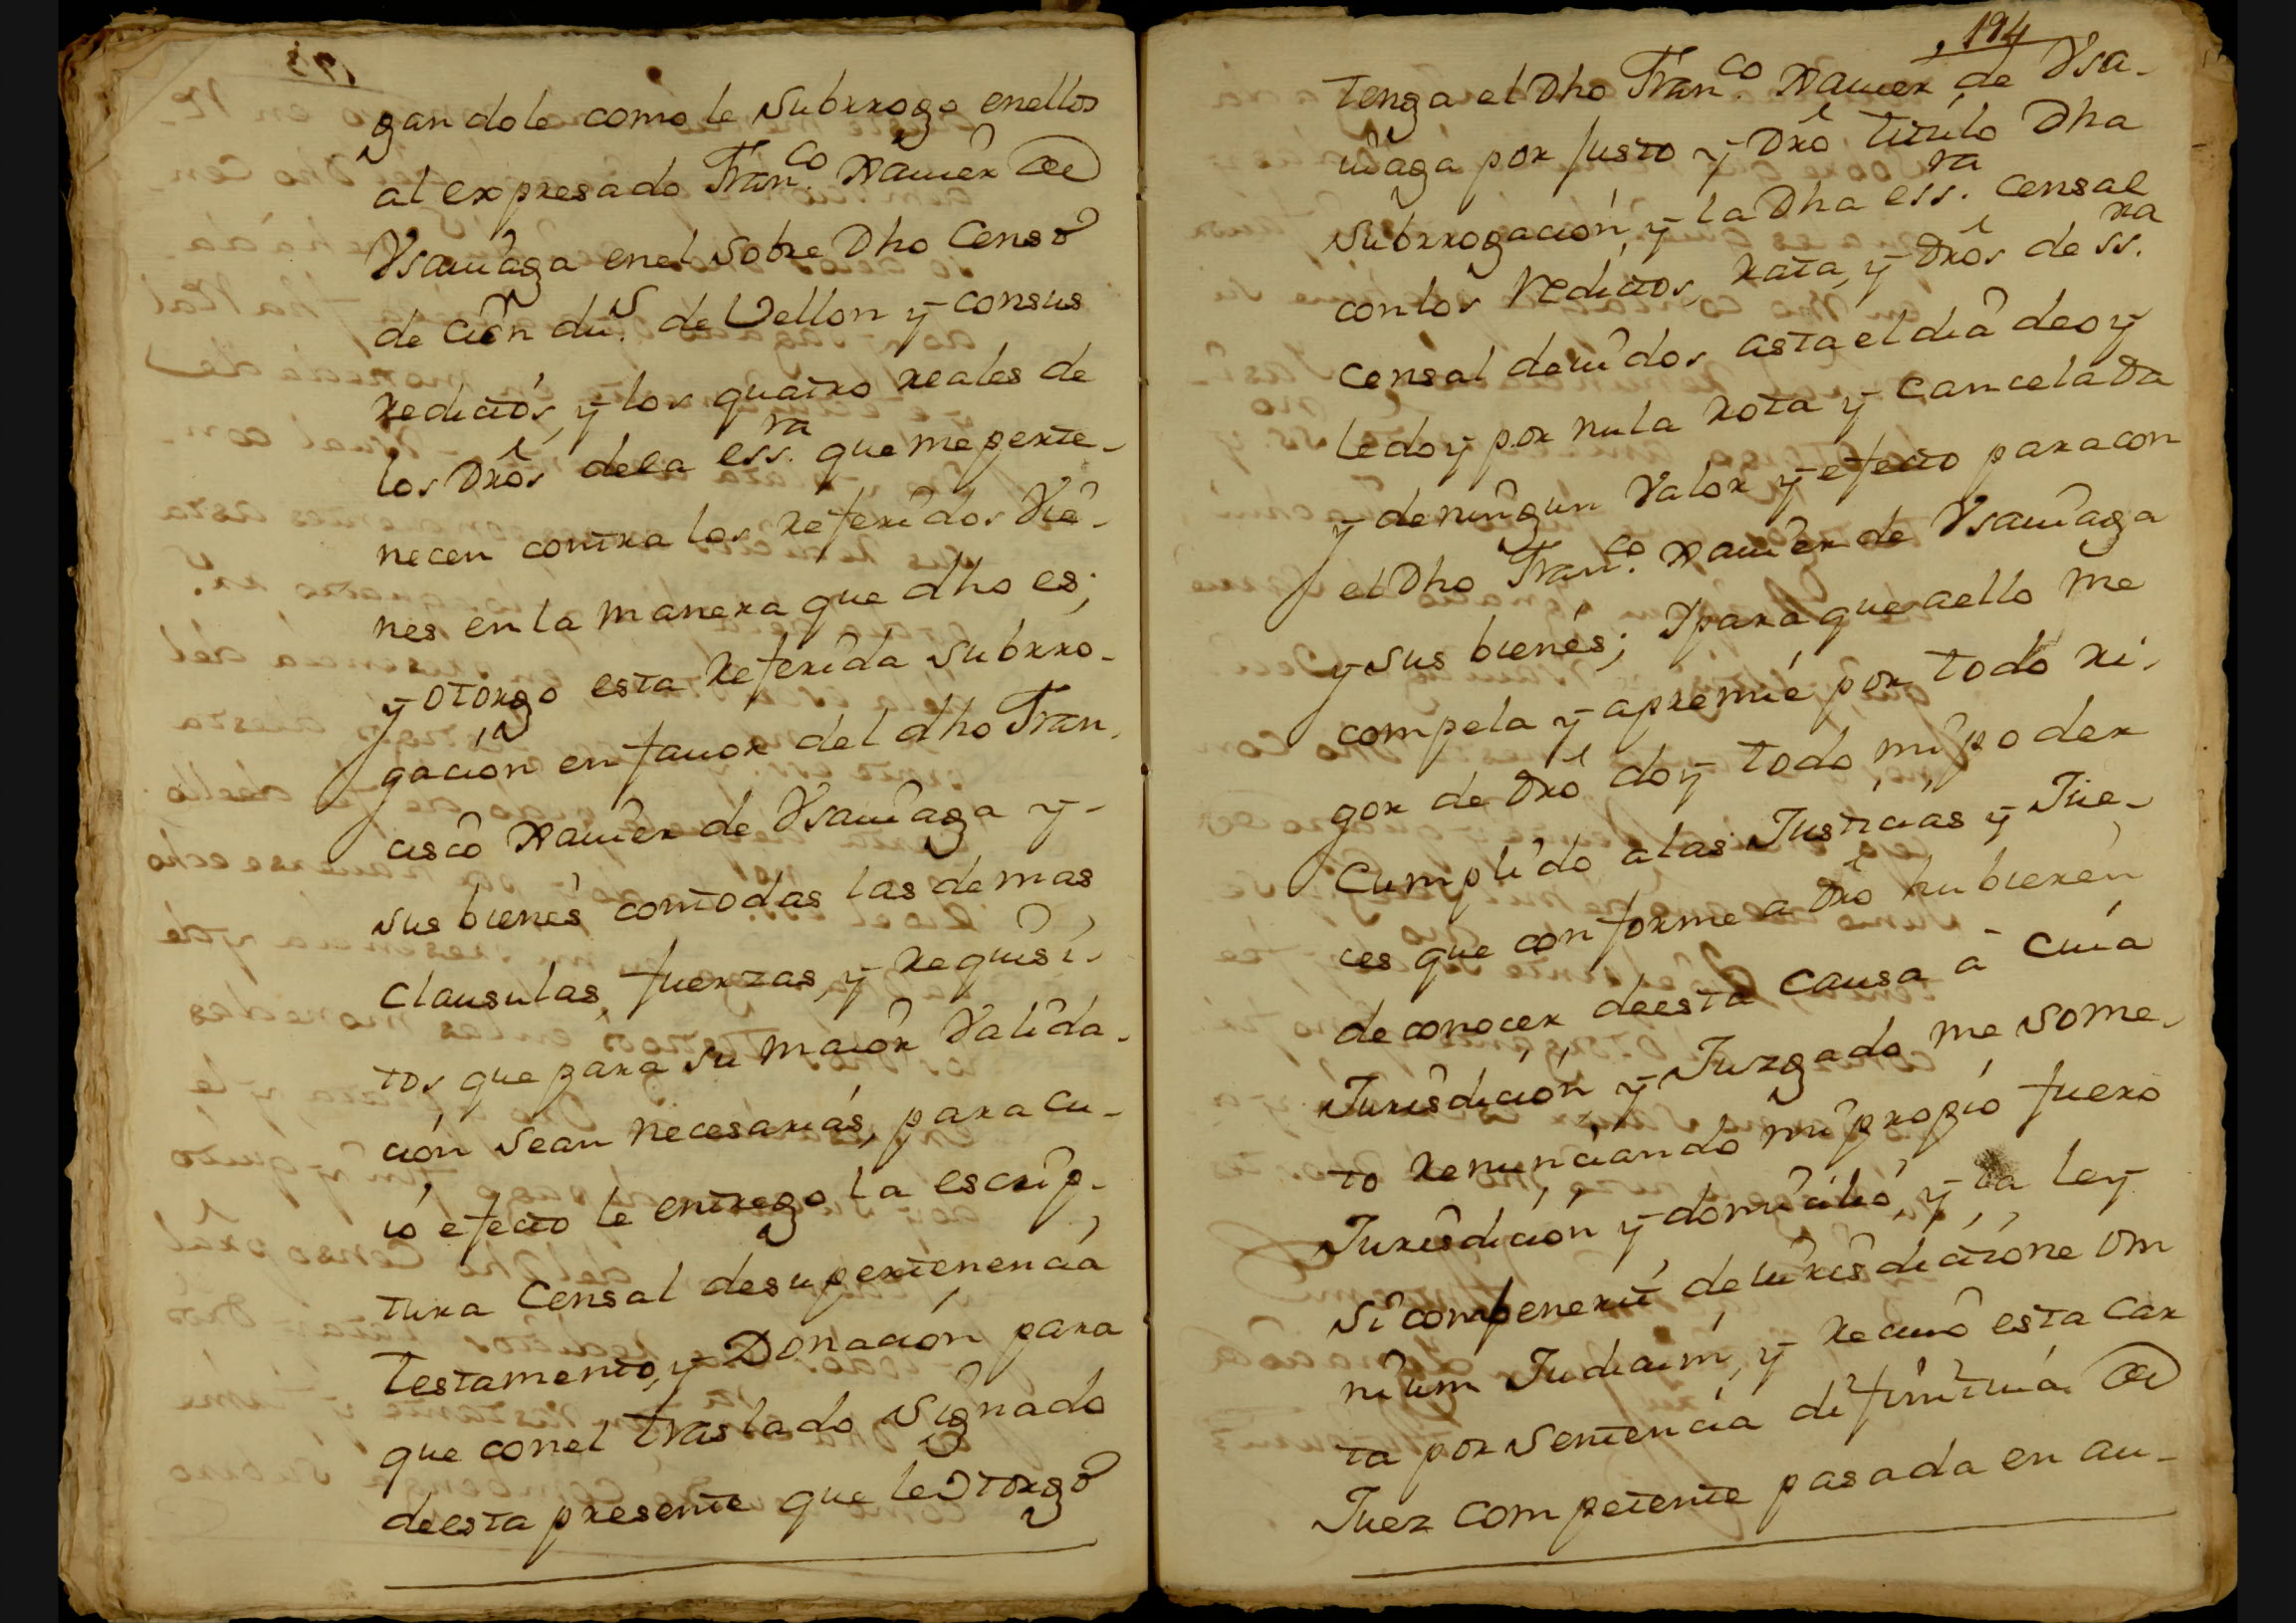 gandole como le Subrrogo enellos
al expresado Fran.co Xauier de
Ysauiaga enel sobre Dho Censo
de cien du.s de Vellon y consus
redictos, y los quatro reales de
los Dros dela ess.ra que me perte-
necen contra los referidos Vie-
nes en la manera que dho es;
y otorgo esta referida subrro-
gación en fauor del dho Fran.
cisco Xauier de Ysauiaga y-
sus bienes contodas las demas
clausulas, fuerzas, y requisi-
tos que para su maior Valida-
ción sean necesarias, para cu-
io efecto le entrego la escrip-
tura Censal desupertenencia
testamento, y Donación para
que conel traslado signado
deesta presente que leotorgo
194
tenga el Dho Fran.co Xauier de Ysa-
uiaga por justo y Dro titulo Dha
subrrogación, y la Dha ess.ra censal
conlos redictos, rata, y Dros de ss.ra
censal deuidos asta el dia deoy
ledoy por nula rota y cancelada
y deningun Valor y efecto paracon
el Dho Fran.co Xauier de Ysauiaga
y sus bienes; Ypara que aello me
compela y apremie por todo ri-
gor de Dro doy todo mi poder
Cumplido alas Justicias y Jue-
ces que conforme a Dro hubieren
deconocer deesta causa à cuia
Jurisdición y Juzgado me some-
to renunciando mi propio fuero
Jurisdición y domicilio, y la ley
si conbenerit deiurisdictione om
nium Judicum, y reciuo esta car
ta por sentencia difinitiua de
Juez competente pasada en au-